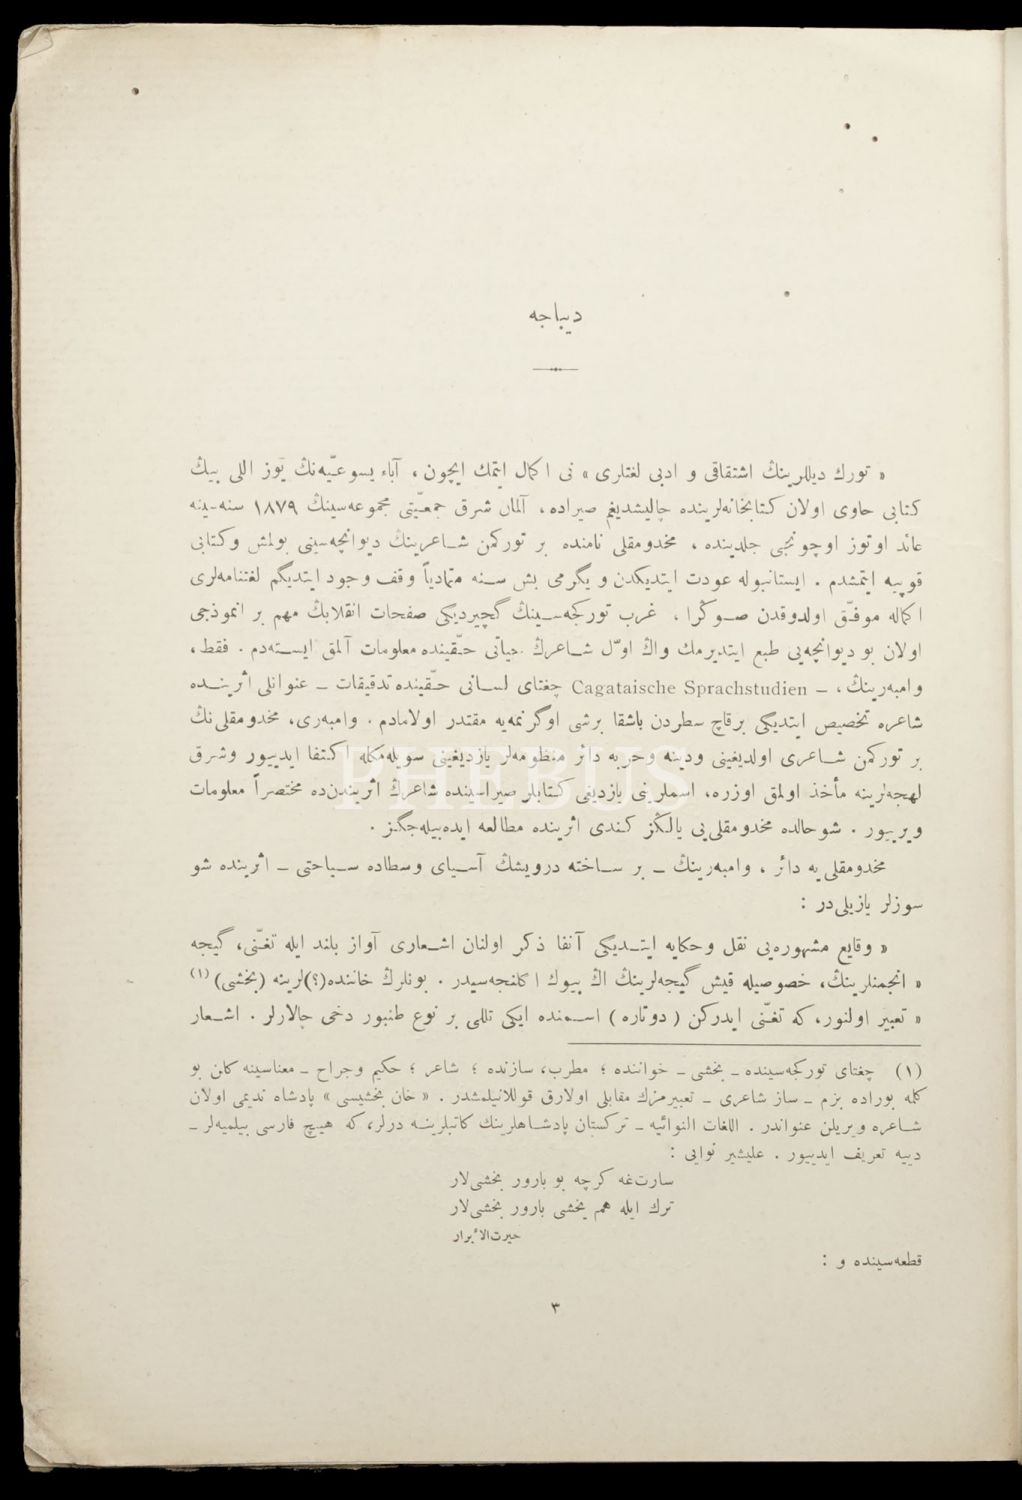 ديباجه
« تورك ديللرينڭ اشتقاقى و ادبى لغتلرى » نى اكمال ايتمك ايچون ، آباء يسوعيّه‌نڭ يوز اللى بيڭ
كتابى حاوى اولان كتابخانه‌لرينده چاليشديغم صيراده، آلمان شرق جمعيّتى مجموعه‌سينڭ ۱۸۷۹ سنه‌سينه
عائد اوتوز اوچونجى جلدينده ، مخدومقلى نامنده بر توركمن شاعرينڭ ديوانچه‌سينى بولمش وكتابى
قوپيه ايتمشدم . ايستانبوله عودت ايتديكدن ويگرمى بش سنه متمادياً وقف وجود ايتديگم لغتنامه‌لرى
اكماله موفّق اولدوقدن صوڭرا ، غرب توركجه‌سينڭ گچيرديگى صفحات انقلابڭ مهم بر انموذجى
اولان بو ديوانچه‌يى طبع ايتديرمك واڭ اوّل شاعرڭ حياتى حقّينده معلومات آلمق ايسته‌دم . فقط،
وامبه‌رينڭ، – Cagataische Sprachstudien چغتاى لسانى حقّينده تدقيقات – عنوانلى اثرينده
شاعره تخصيص ايتديگى برقاچ سطردن باشقا برشى اوگرنمه‌يه مقتدر اولامادم . وامبه‌رى، مخدومقلى‌نڭ
بر توركمن شاعرى اولديغينى ودينه وحربه دائر منظومه‌لر يازديغينى سويله‌مكله اكتفا ايدييور وشرق
لهجه‌لرينه مأخذ اولمق اوزره، اسملرينى يازديغى كتابلر صيراسينده شاعرڭ اثريندن‌ده مختصراً معلومات
ويرييور . شوحالده مخدومقلى‌يى يالڭز كندى اثرينده مطالعه ايده‌بيله‌جگز .
مخدومقلى‌يه دائر ، وامبه‌رينڭ – بر ساخته درويشڭ آسياى وسطاده سياحتى – اثرينده شو
سوزلر يازيلى‌در :
« وقايع مشهوره‌يى نقل وحكايه ايتديگى آنفا ذكر اولنان اشعارى آواز بلند ايله تغنّى، گيجه
« انجمنلرينڭ، خصوصيله قيش گيجه‌لرينڭ اڭ بيوك اكلنجه‌سيدر . بونلرڭ خاننده(؟)لرينه (بخشى)(۱)
« تعبير اولنور، كه تغنّى ايدركن ( دوتاره ) اسمنده ايكى تللى بر نوع طنبور دخى چالارلر . اشعار
(۱) چغتاى توركجه‌سينده – بخشى – خواننده ؛ مطرب، سازنده ؛ شاعر ؛ حكيم وجراح – معناسينه كلن بو
كلمه بوراده بزم – ساز شاعرى – تعبيرمزڭ مقابلى اولارق قوللانيلمشدر . « خان بخشيسى » پادشاه نديمى اولان
شاعره ويريلن عنواندر . اللغات النوائيه – تركستان پادشاهلرينڭ كاتبلرينه درلر، كه هيچ فارسى بيلميه‌لر –
دييه تعريف ايدييور . عليشير نوايى :
سارت‌غه كرچه بو بارور بخشى‌لار
ترك ايله هم يخشى بارور بخشى‌لار
حيرت‌الأبرار
قطعه‌سينده و :
۳
PHEBUS